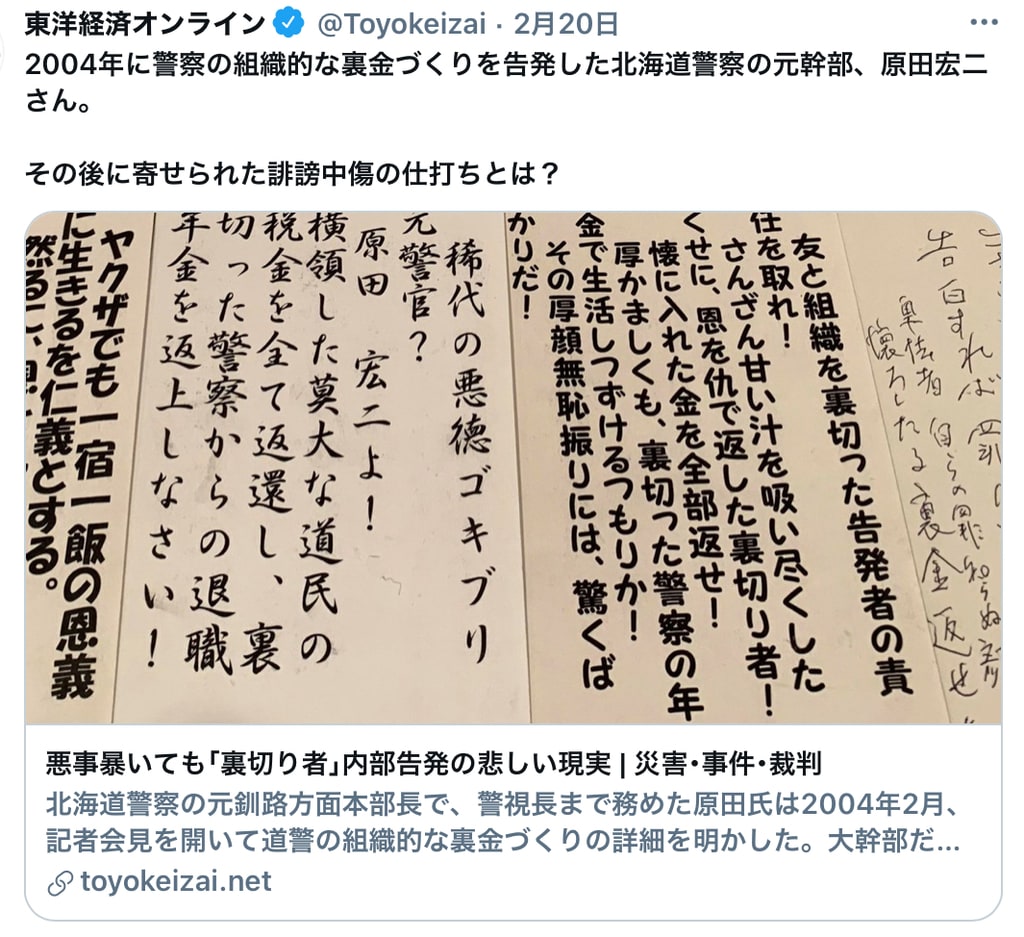 東洋経済オンライン @Toyokeizai · 2月20日
2004年に警察の組織的な裏金づくりを告発した北海道警察の元幹部、原田宏二
さん。
その後に寄せられた誹謗中傷の仕打ちとは？
告白すれば
自らの罪
懐ろしたる裏金返せ
友と組織を裏切った告発者の責
任を取れ！
さんざん甘い汁を吸い尽くした
くせに、恩を仇で返した裏切り者！
懐に入れた金を全部返せ！
厚かましくも、裏切った警察の年
金で生活しつずけるつもりか！
その厚顔無恥振りには、驚くば
かりだ！
稀代の悪徳ゴキブリ
元警官？
原田 宏二よ！
横領した莫大な道民の
税金を全て返還し、裏
切った警察からの退職
年金を返上しなさい！
ヤクザでも一宿一飯の恩義
に生きるを仁義とする。
然るに、
悪事暴いても｢裏切り者｣内部告発の悲しい現実 | 災害･事件･裁判
北海道警察の元釧路方面本部長で、警視長まで務めた原田氏は2004年2月、
記者会見を開いて道警の組織的な裏金づくりの詳細を明かした。大幹部だ...
toyokeizai.net